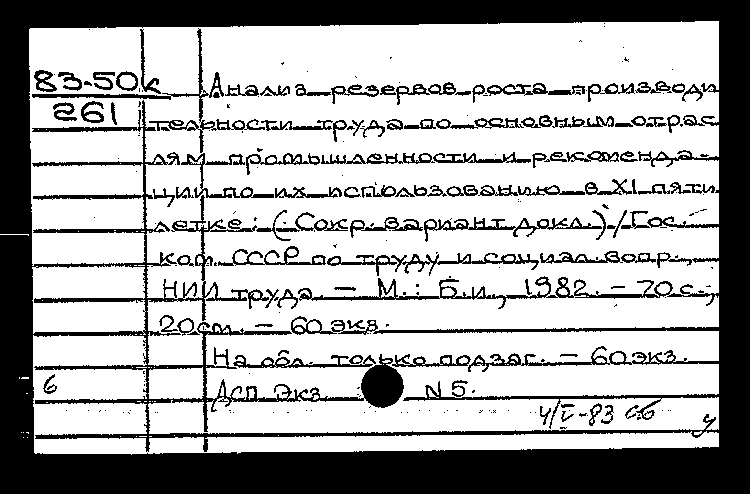 83-50к Анализ резервов роста производи
261 тельности труда по основным отрас
лям промышленности и рекоменда-
ции по их использованию в XI пяти
летке: (Сокр. вариант докл.)/Гос.
ком. СССР по труду и социал. вопр.,
НИИ труда. — М.: Б.и., 1982. — 70 с.;
20 см. — 60 экз.
На обл. только подзаг. — 60 экз.
6 ДСП Экз. N 5.
4/I-83 сб
у